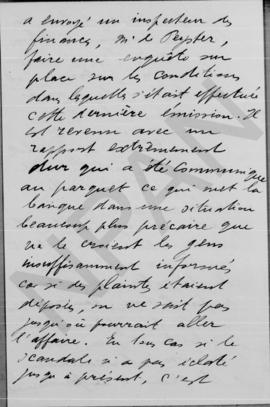 a envoyé un inspecteur des
finances, Mr de Peyster,
faire une enquête sur
place sur les conditions
dans lesquelles s'était effectuée
cette dernière émission. Il
est revenu avec un
rapport extrêmement
dur qui a été communiqué
au parquet ce qui met la
banque dans une situation
beaucoup plus précaire que
ne le croient les gens
insuffisamment informés
car si des plaintes étaient
déposées, on ne sait pas
jusqu'où pourrait aller
l'affaire. En tous cas si le
scandale n'a pas éclaté
jusqu'à présent, c'est